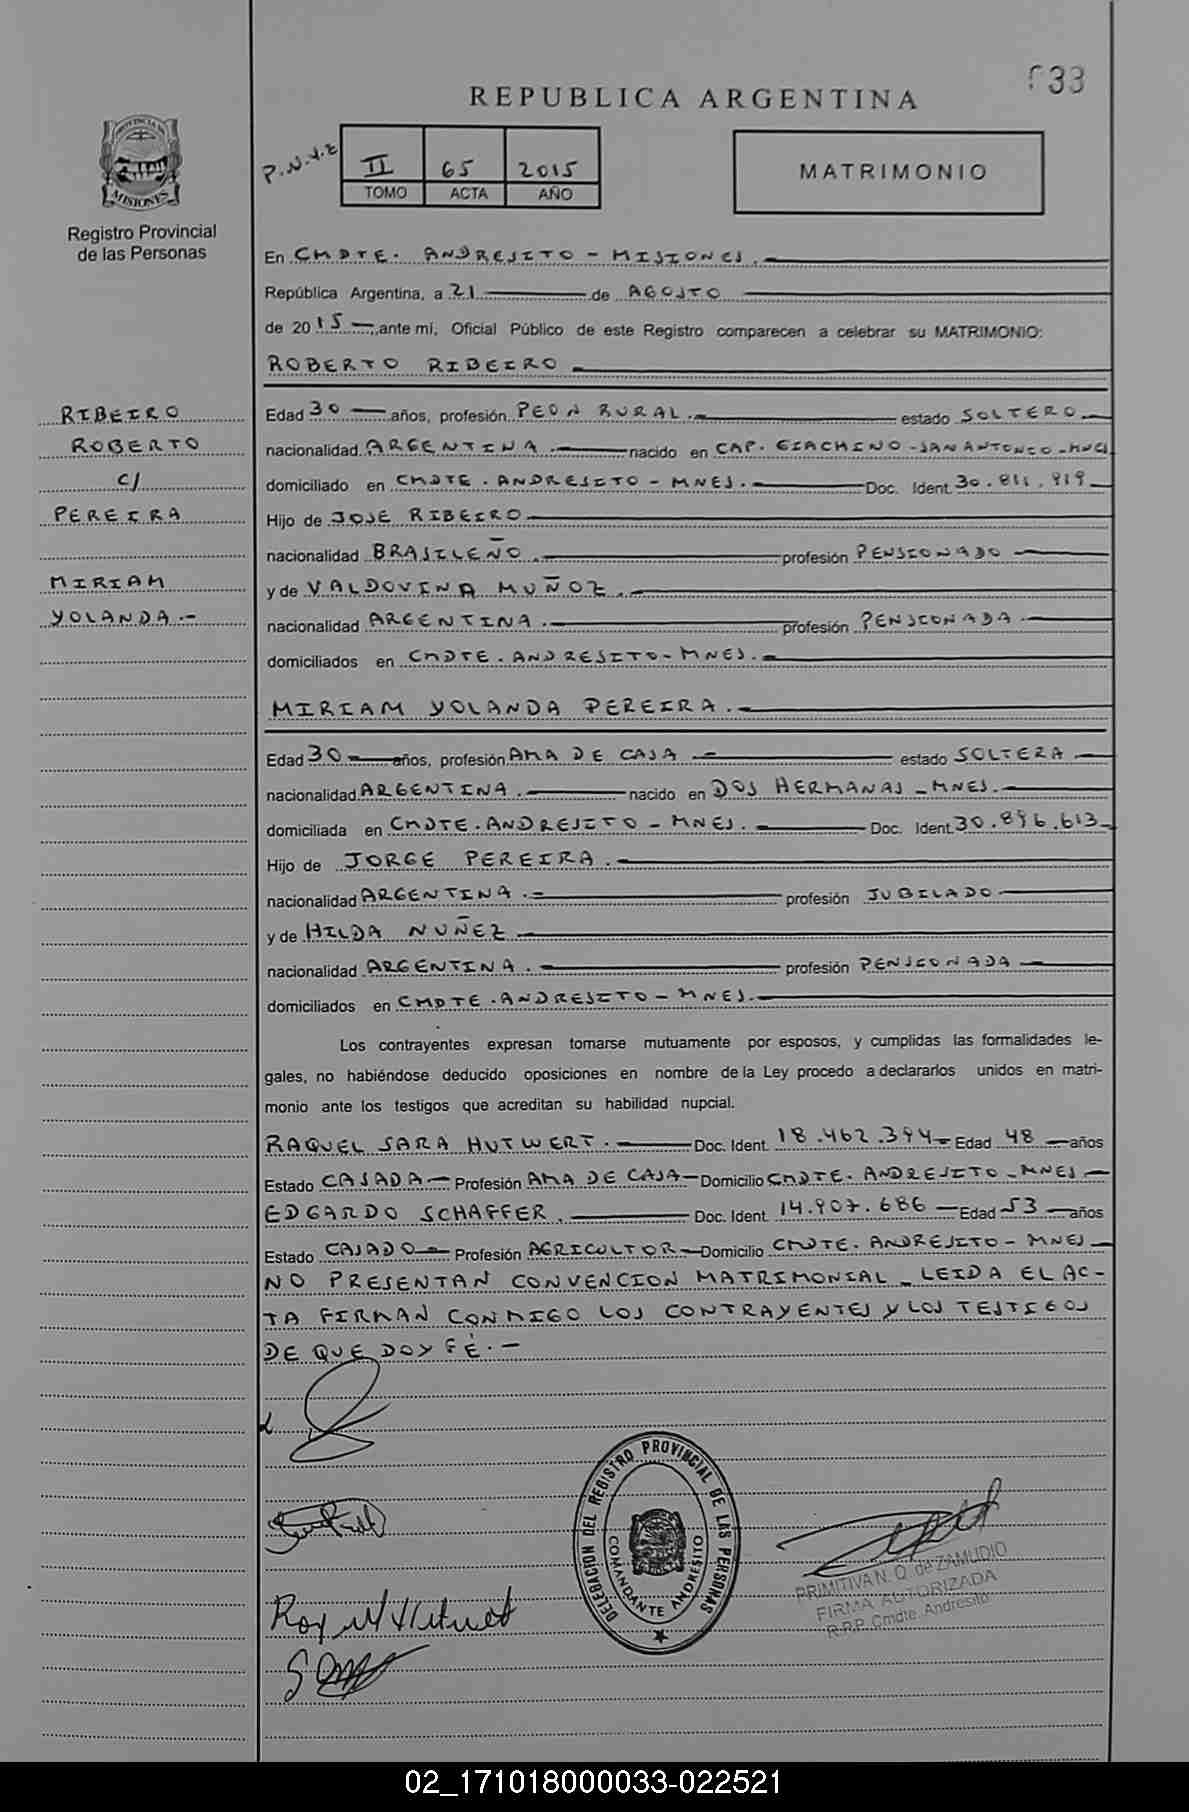 033
REPUBLICA ARGENTINA
P.N.Y.Z
II 65 2015
TOMO ACTA AÑO
MATRIMONIO
PROVINCIA DE
MISIONES
Registro Provincial
de las Personas
En CMDTE. ANDRESITO - MISIONES.
República Argentina, a 21 de AGOSTO
de 2015 ,ante mí, Oficial Público de este Registro comparecen a celebrar su MATRIMONIO:
ROBERTO RIBEIRO
RIBEIRO
ROBERTO
C/
PEREIRA
MIRIAM
YOLANDA.-
Edad 30 años, profesión PEON RURAL. estado SOLTERO
nacionalidad ARGENTINA. nacido en CAP. GIACHINO - SAN ANTONIO - MNES
domiciliado en CMDTE. ANDRESITO - MNES. Doc. Ident. 30.811.919
Hijo de JOSE RIBEIRO
nacionalidad BRASILEÑO. profesión PENSIONADO
y de VALDOVINA MUÑOZ.
nacionalidad ARGENTINA. profesión PENSIONADA
domiciliados en CMDTE. ANDRESITO - MNES.
MIRIAM YOLANDA PEREIRA.
Edad 30 años, profesión AMA DE CASA estado SOLTERA
nacionalidad ARGENTINA. nacido en DOS HERMANAS - MNES.
domiciliada en CMDTE. ANDRESITO - MNES. Doc. Ident. 30.896.613
Hijo de JORGE PEREIRA.
nacionalidad ARGENTINA. profesión JUBILADO
y de HILDA NUÑEZ
nacionalidad ARGENTINA. profesión PENSIONADA
domiciliados en CMDTE. ANDRESITO - MNES.
Los contrayentes expresan tomarse mutuamente por esposos, y cumplidas las formalidades le-
gales, no habiéndose deducido oposiciones en nombre de la Ley procedo a declararlos unidos en matri-
monio ante los testigos que acreditan su habilidad nupcial.
RAQUEL SARA HUTWERT. Doc. Ident. 18.462.394 Edad 48 años
Estado CASADA Profesión AMA DE CASA Domicilio CMDTE. ANDRESITO - MNES
EDGARDO SCHAFFER. Doc. Ident. 14.907.686 Edad 53 años
Estado CASADO Profesión AGRICULTOR Domicilio CMDTE. ANDRESITO - MNES
NO PRESENTAN CONVENCION MATRIMONIAL - LEIDA EL AC-
TA FIRMAN CONMIGO LOS CONTRAYENTES Y LOS TESTIGOS
DE QUE DOY FÉ.-
DELEGACION DEL REGISTRO PROVINCIAL DE LAS PERSONAS
COMANDANTE ANDRESITO
PRIMITIVA N. O. de ZAMUDIO
FIRMA AUTORIZADA
R.R.P. Cmdte. Andresito
02_171018000033-022521